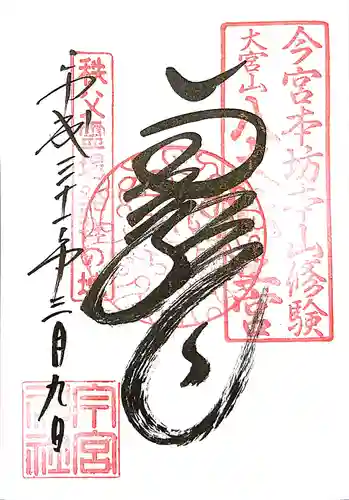 今宮本坊本山修験
大宮山
秩父霊場発祥の地
平成三十一年三月九日
今宮
神社